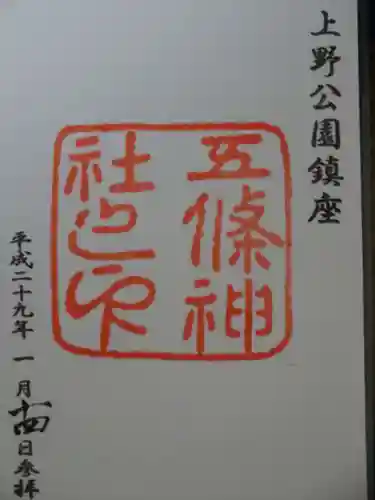 上野公園鎮座
五條神
社之印
平成二十九年一月十四日参拝